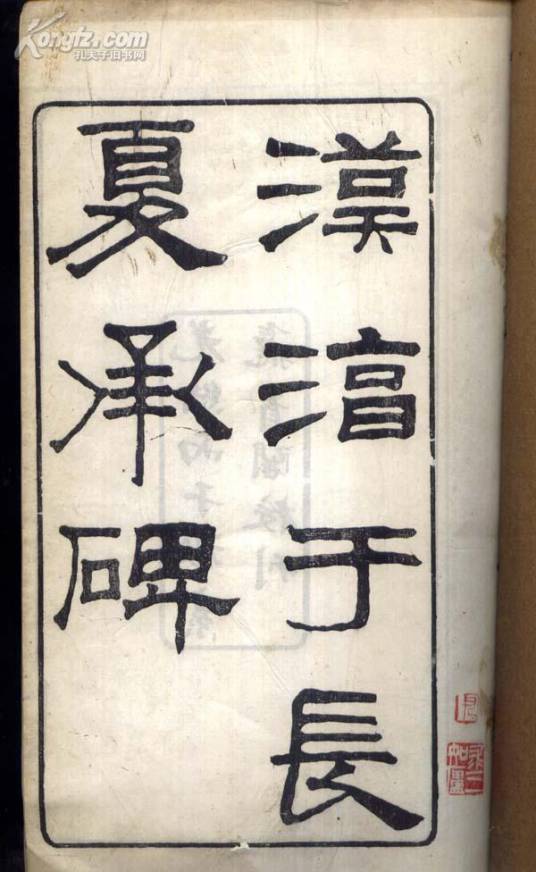 Kongfz.com
孔夫子旧书网
漢淯于長
夏承碑